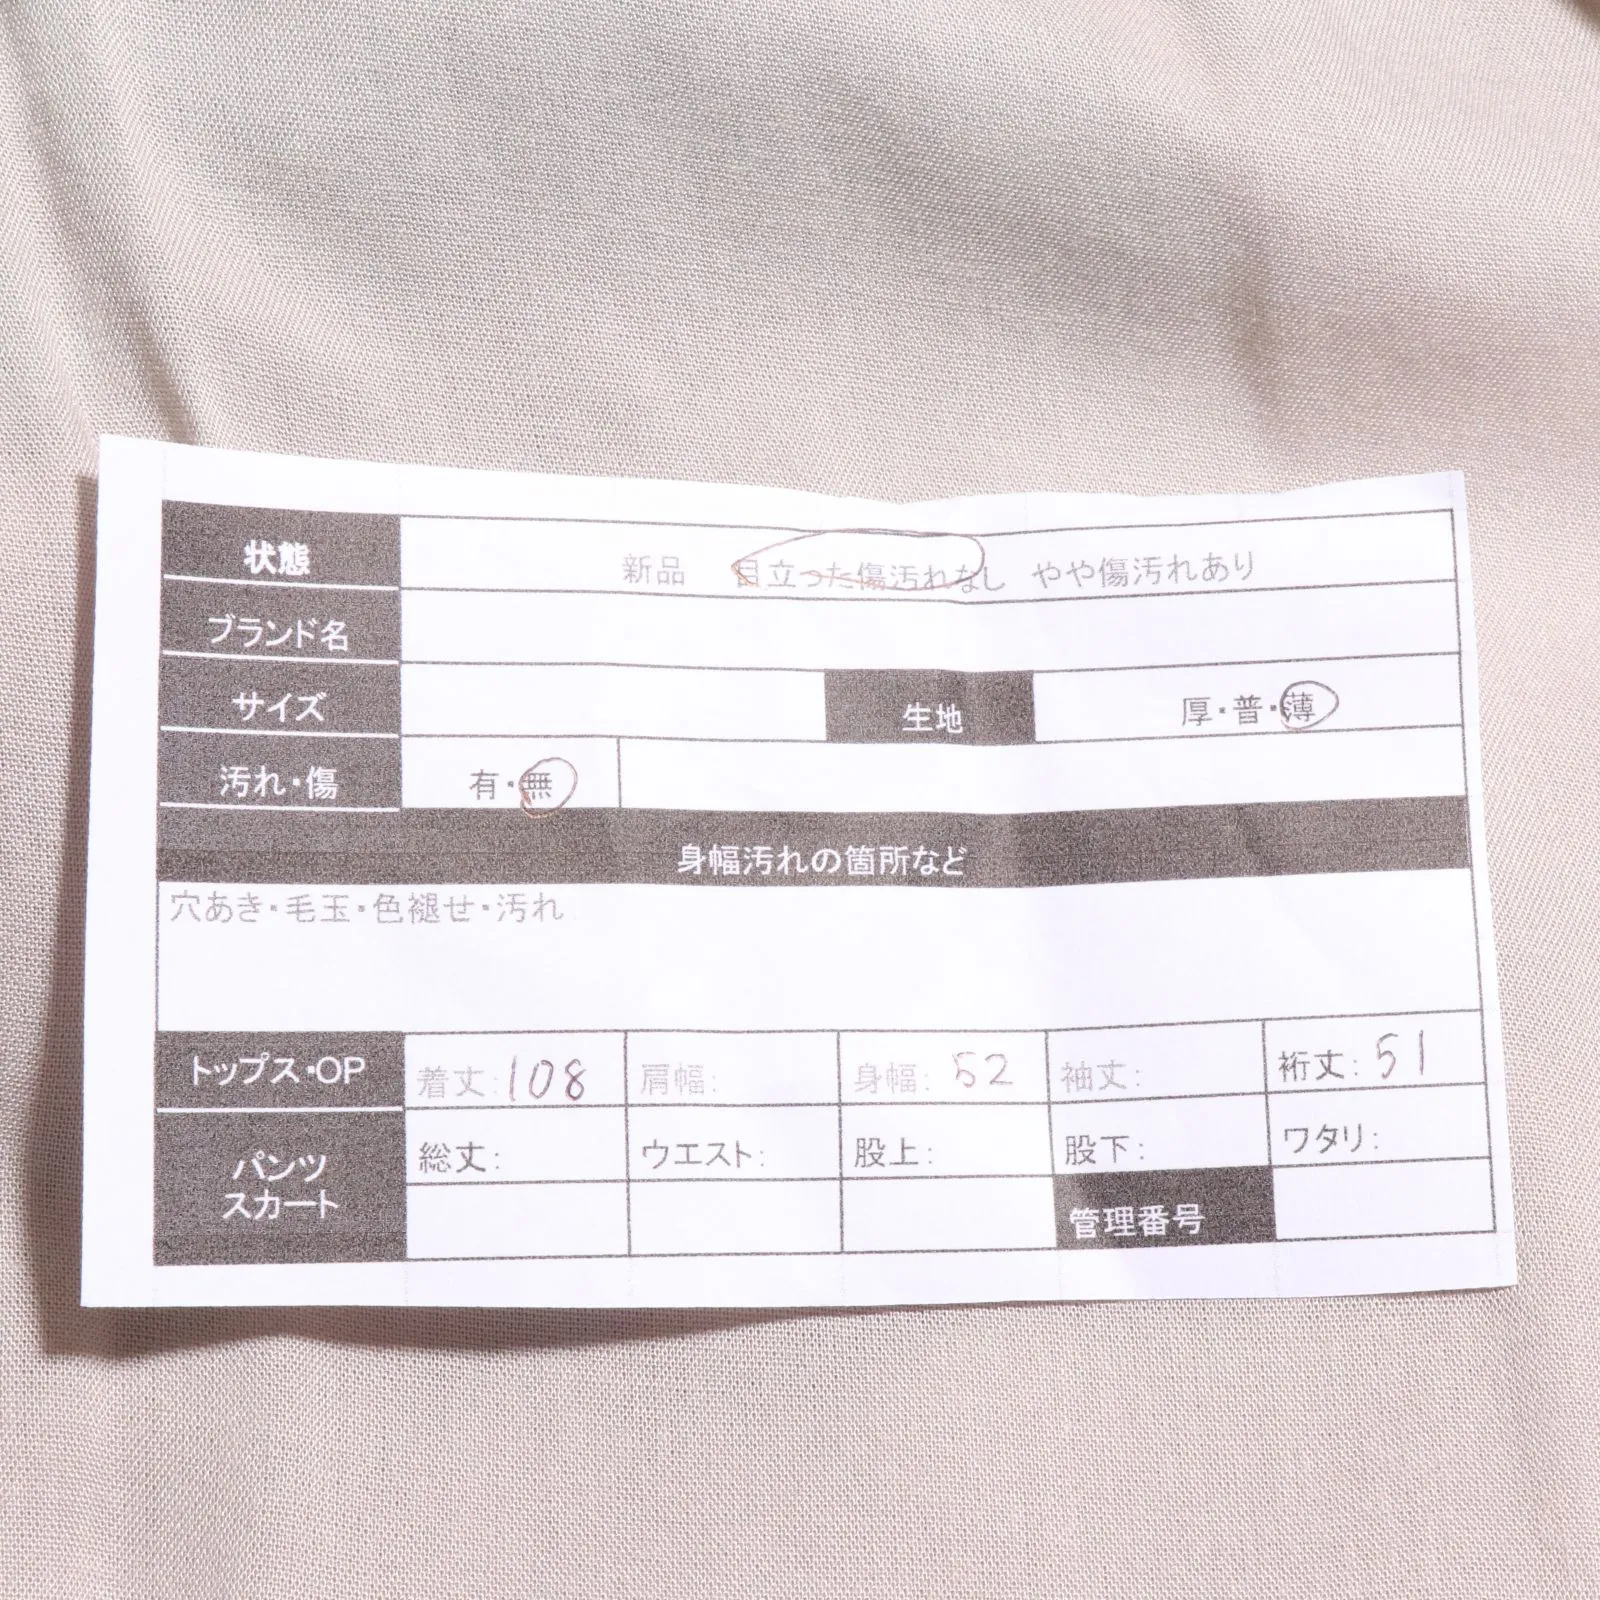 状態 新品 目立った傷汚れなし やや傷汚れあり
ブランド名
サイズ 生地 厚・普・薄
汚れ・傷 有・無
身幅汚れの箇所など
穴あき・毛玉・色褪せ・汚れ
トップス・OP 着丈:108 肩幅: 身幅: 52 袖丈: 裄丈: 51
パンツ 総丈: ウエスト: 股上: 股下: ワタリ:
スカート 管理番号